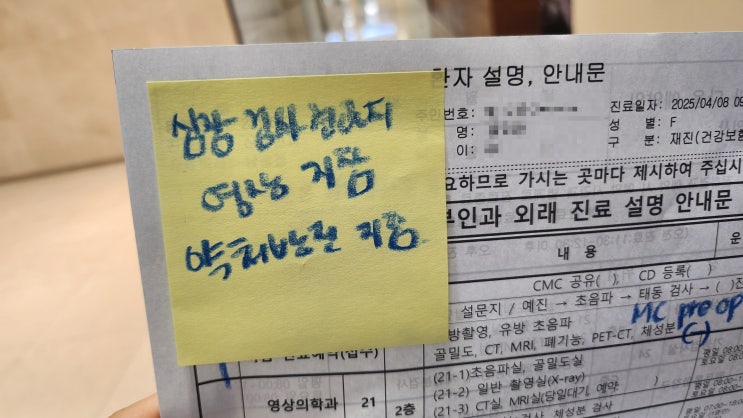 심장 검사 결과지
영상 지참
약 처방전 지참
환자 설명, 안내문
번호:
진료일자: 2025/04/08 09
명:
성 별: F
이:
구 분: 재진(건강보험
요하므로 가시는 곳마다 제시하여 주십시
부인과 외래 진료 설명 안내문
내 용
운
CMC 공유( ), CD 등록( )
설문지 / 예진 → 초음파 → 태동 검사 → ( )진
MC pre op
(-)
방촬영, 유방 초음파
골밀도, CT, MRI, 폐기능, PET-CT, 체성분
(21-1)초음파실, 골밀도실
(21-2) 일반 촬영실(X-ray)
영상의학과 21 2층
(21-3) CT실, MRI실(당일대기, 예약 )
평일 08:00
토요일 08:00
평일 08:00~